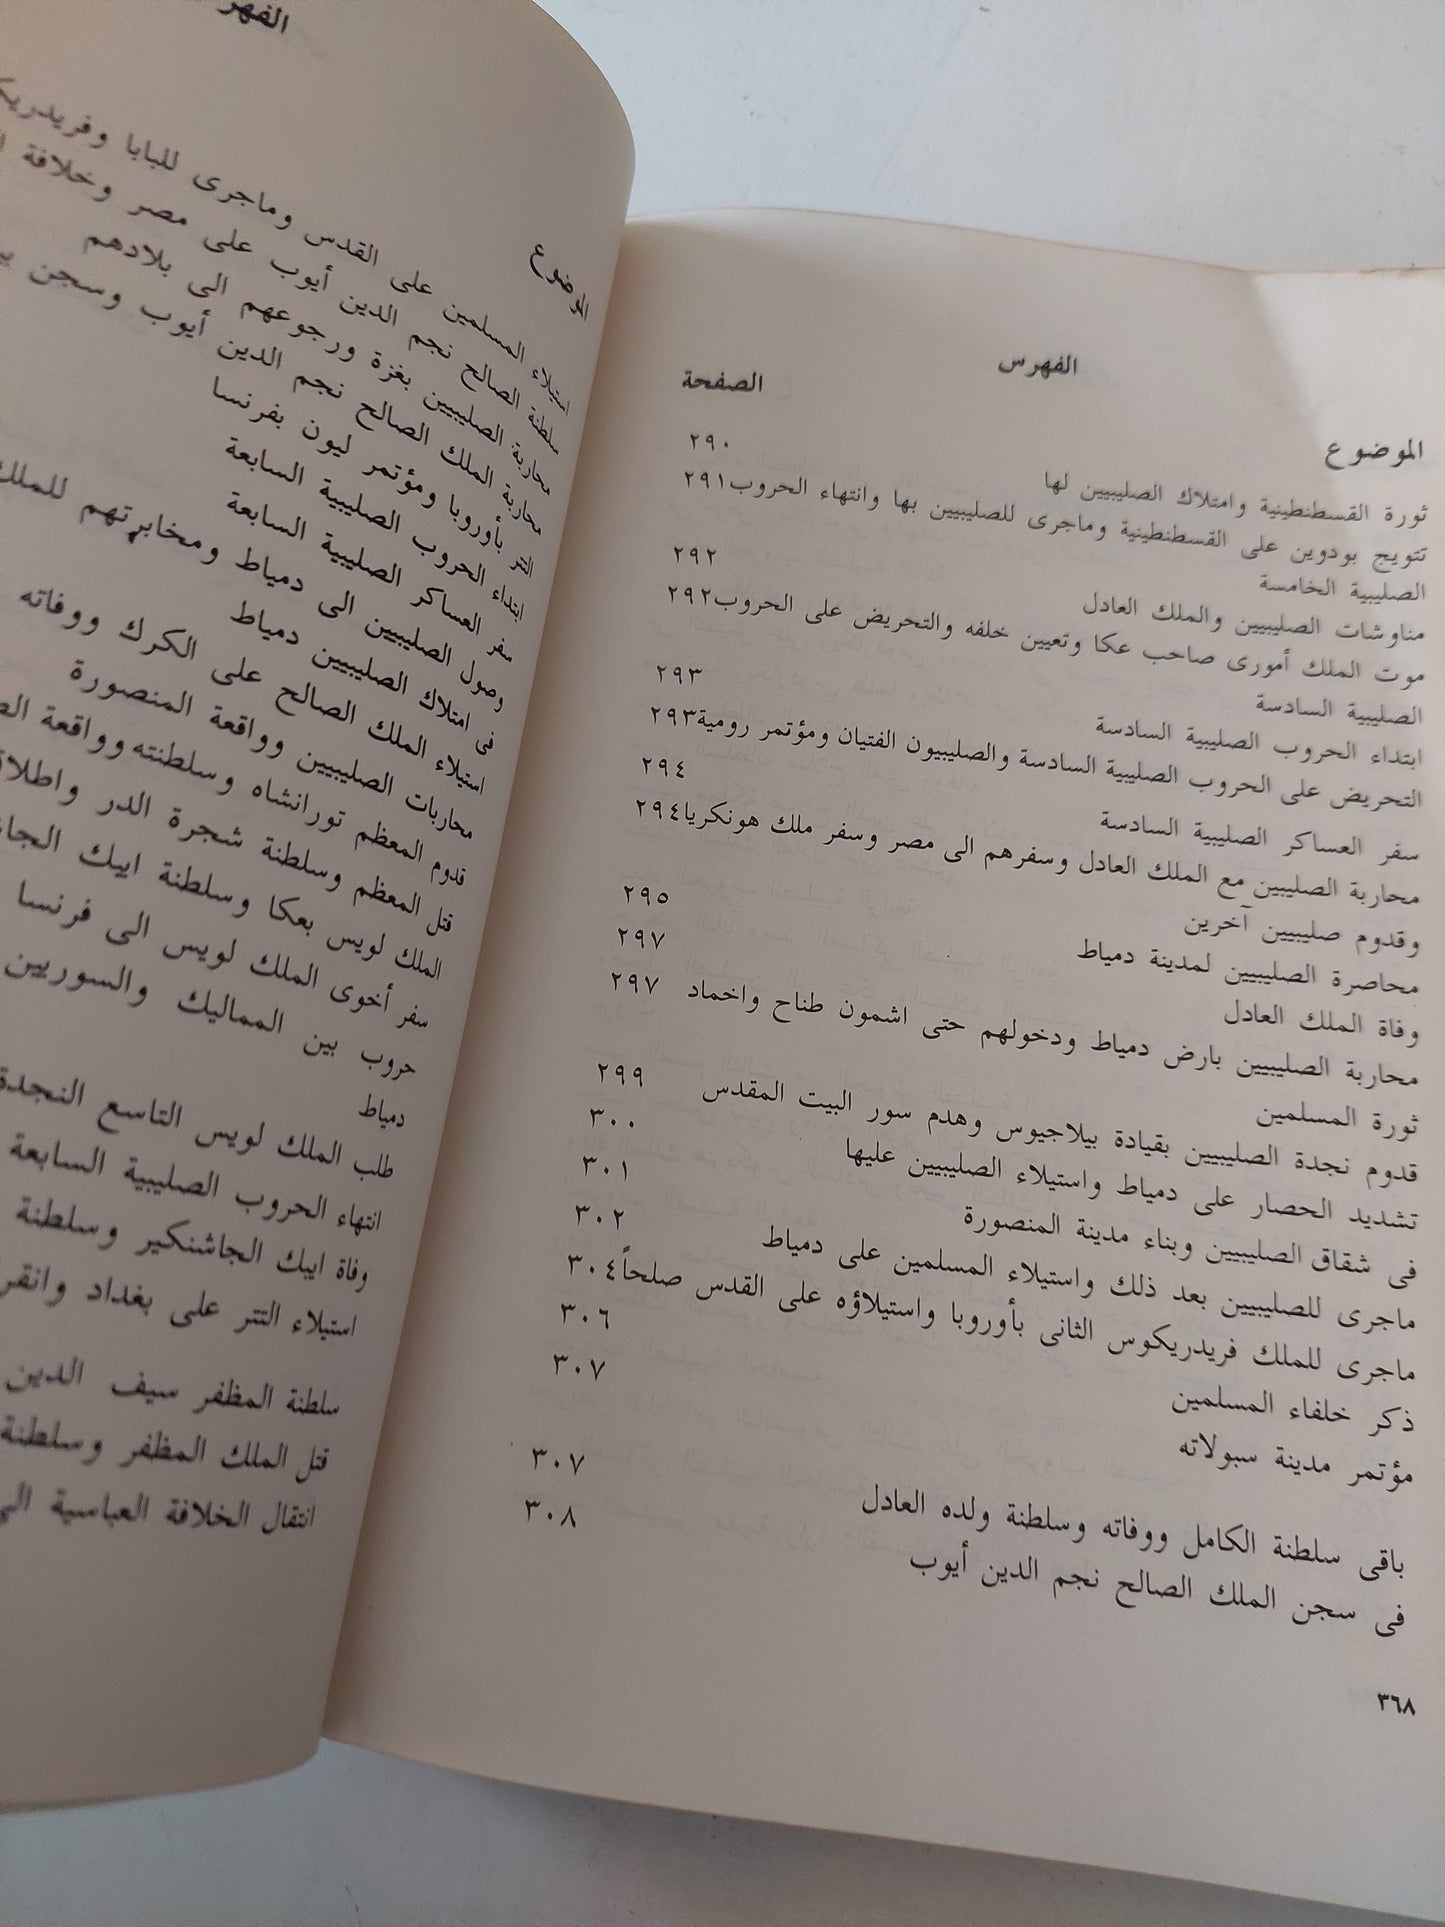 الفهرس
الموضوع الصفحة
ثورة القسطنطينية وامتلاك الصليبيين لها ٢٩٠
تتويج بودوين على القسطنطينية وماجرى للصليبيين بها وانتهاء الحروب ٢٩١
الصليبية الخامسة
مناوشات الصليبيين والملك العادل ٢٩٢
موت الملك أمورى صاحب عكا وتعيين خلفه والتحريض على الحروب ٢٩٢
الصليبية السادسة
ابتداء الحروب الصليبية السادسة ٢٩٣
التحريض على الحروب الصليبية السادسة والصليبيون الفتيان ومؤتمر رومية ٢٩٣
سفر العساكر الصليبية السادسة ٢٩٤
محاربة الصليبيين مع الملك العادل وسفرهم الى مصر وسفر ملك هونكريا ٢٩٤
وقدوم صليبيين آخرين
محاصرة الصليبيين لمدينة دمياط ٢٩٥
وفاة الملك العادل ٢٩٧
محاربة الصليبيين بارض دمياط ودخولهم حتى اشمون طناح واخماد ٢٩٧
ثورة المسلمين
قدوم نجدة الصليبيين بقيادة بيلاجيوس وهدم سور البيت المقدس ٢٩٩
تشديد الحصار على دمياط واستيلاء الصليبيين عليها ٣٠٠
فى شقاق الصليبيين وبناء مدينة المنصورة ٣٠١
ماجرى للصليبيين بعد ذلك واستيلاء المسلمين على دمياط ٣٠٢
ماجرى للملك فريدريكوس الثانى بأوروبا واستيلاؤه على القدس صلحاً ٣٠٤
ذكر خلفاء المسلمين ٣٠٦
مؤتمر مدينة سبولاته ٣٠٧
باقى سلطنة الكامل ووفاته وسلطنة ولده العادل ٣٠٧
فى سجن الملك الصالح نجم الدين أيوب ٣٠٨
٣٦٨
الموضوع
استيلاء المسلمين على القدس وماجرى للبابا
سلطنة الصالح نجم الدين أيوب على مصر وخلافة
محاربة الصليبيين بغزة ورجوعهم الى بلادهم
محاربة الملك الصالح نجم الدين أيوب وسجن
التتر بأوروبا ومؤتمر ليون بفرنسا
ابتداء الحروب الصليبية السابعة
سفر العساكر الصليبية السابعة
وصول الصليبيين الى دمياط ومخابرتهم للملك
فى امتلاك الصليبيين دمياط
استيلاء الملك الصالح على الكرك ووفاته
محاربات الصليبيين وواقعة المنصورة
قدوم المعظم تورانشاه وسلطنته وواقعة
قتل المعظم وسلطنة شجرة الدر
الملك لويس بعكا وسلطنة ايبك
سفر أخوى الملك لويس الى فرنسا
حروب بين المماليك والسوريين
دمياط
طلب الملك لويس التاسع النجدة
انتهاء الحروب الصليبية السابعة
وفاة ايبك الجاشنكير وسلطنة
استيلاء التتر على بغداد
سلطنة المظفر سيف الدين
قتل الملك المظفر وسلطنة
انتقال الخلافة العباسية